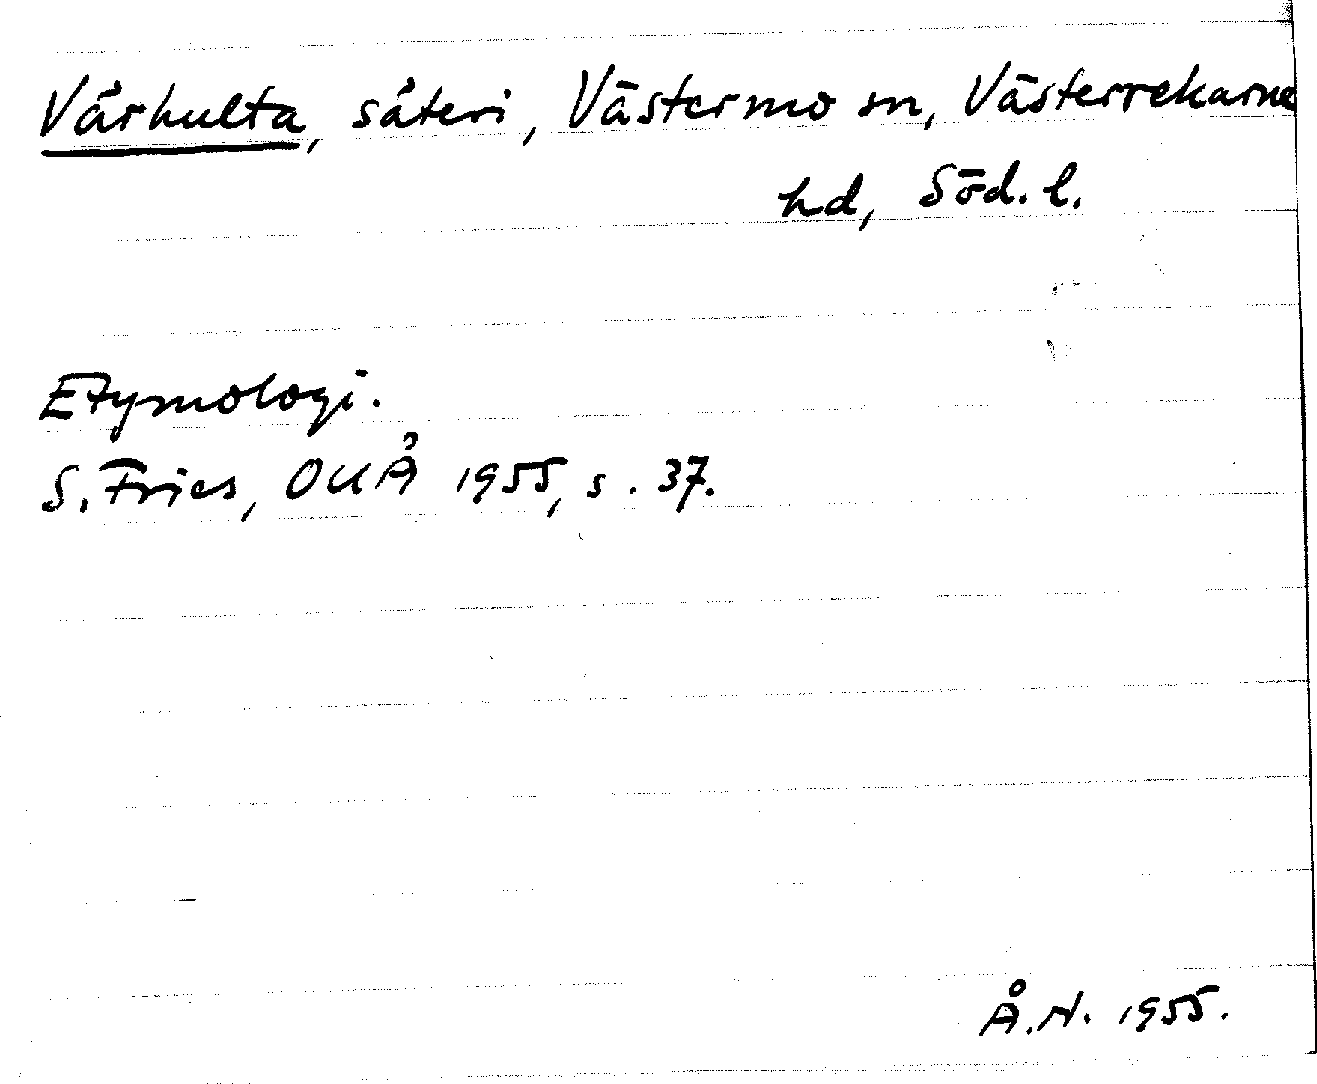 Vårhulta, säteri, Västermo sn, Västerrekarne
hd, Söd. l.
Etymologi.
S. Fries, OUÅ 1955, s. 37.
Å.N. 1955.